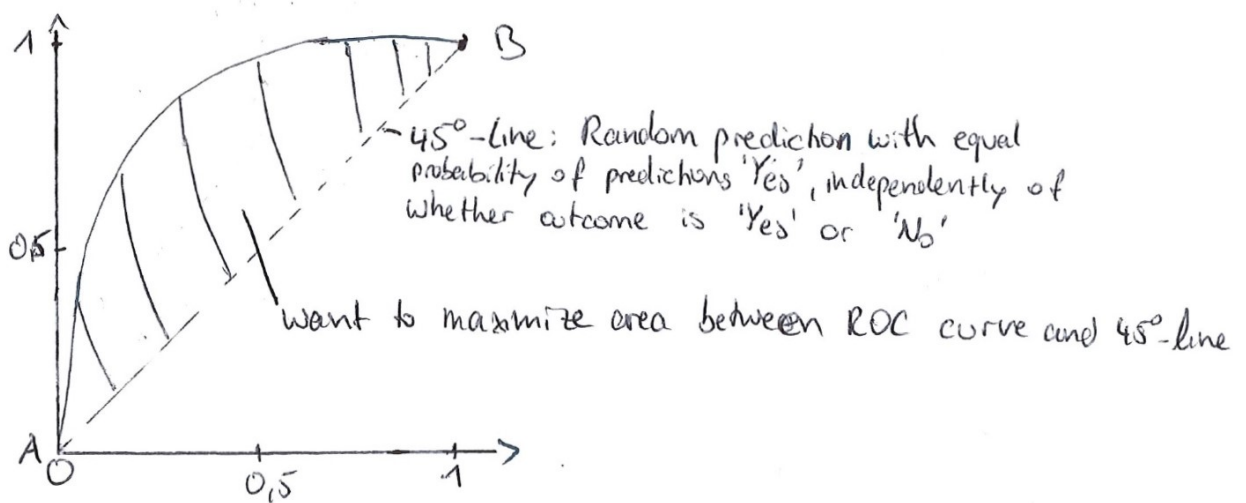 1
B
45°-line: Random prediction with equal
probability of predictions 'Yes', independently of
whether outcome is 'Yes' or 'No'
0,5
want to maximize area between ROC curve and 45°-line
A
0
0,5
1